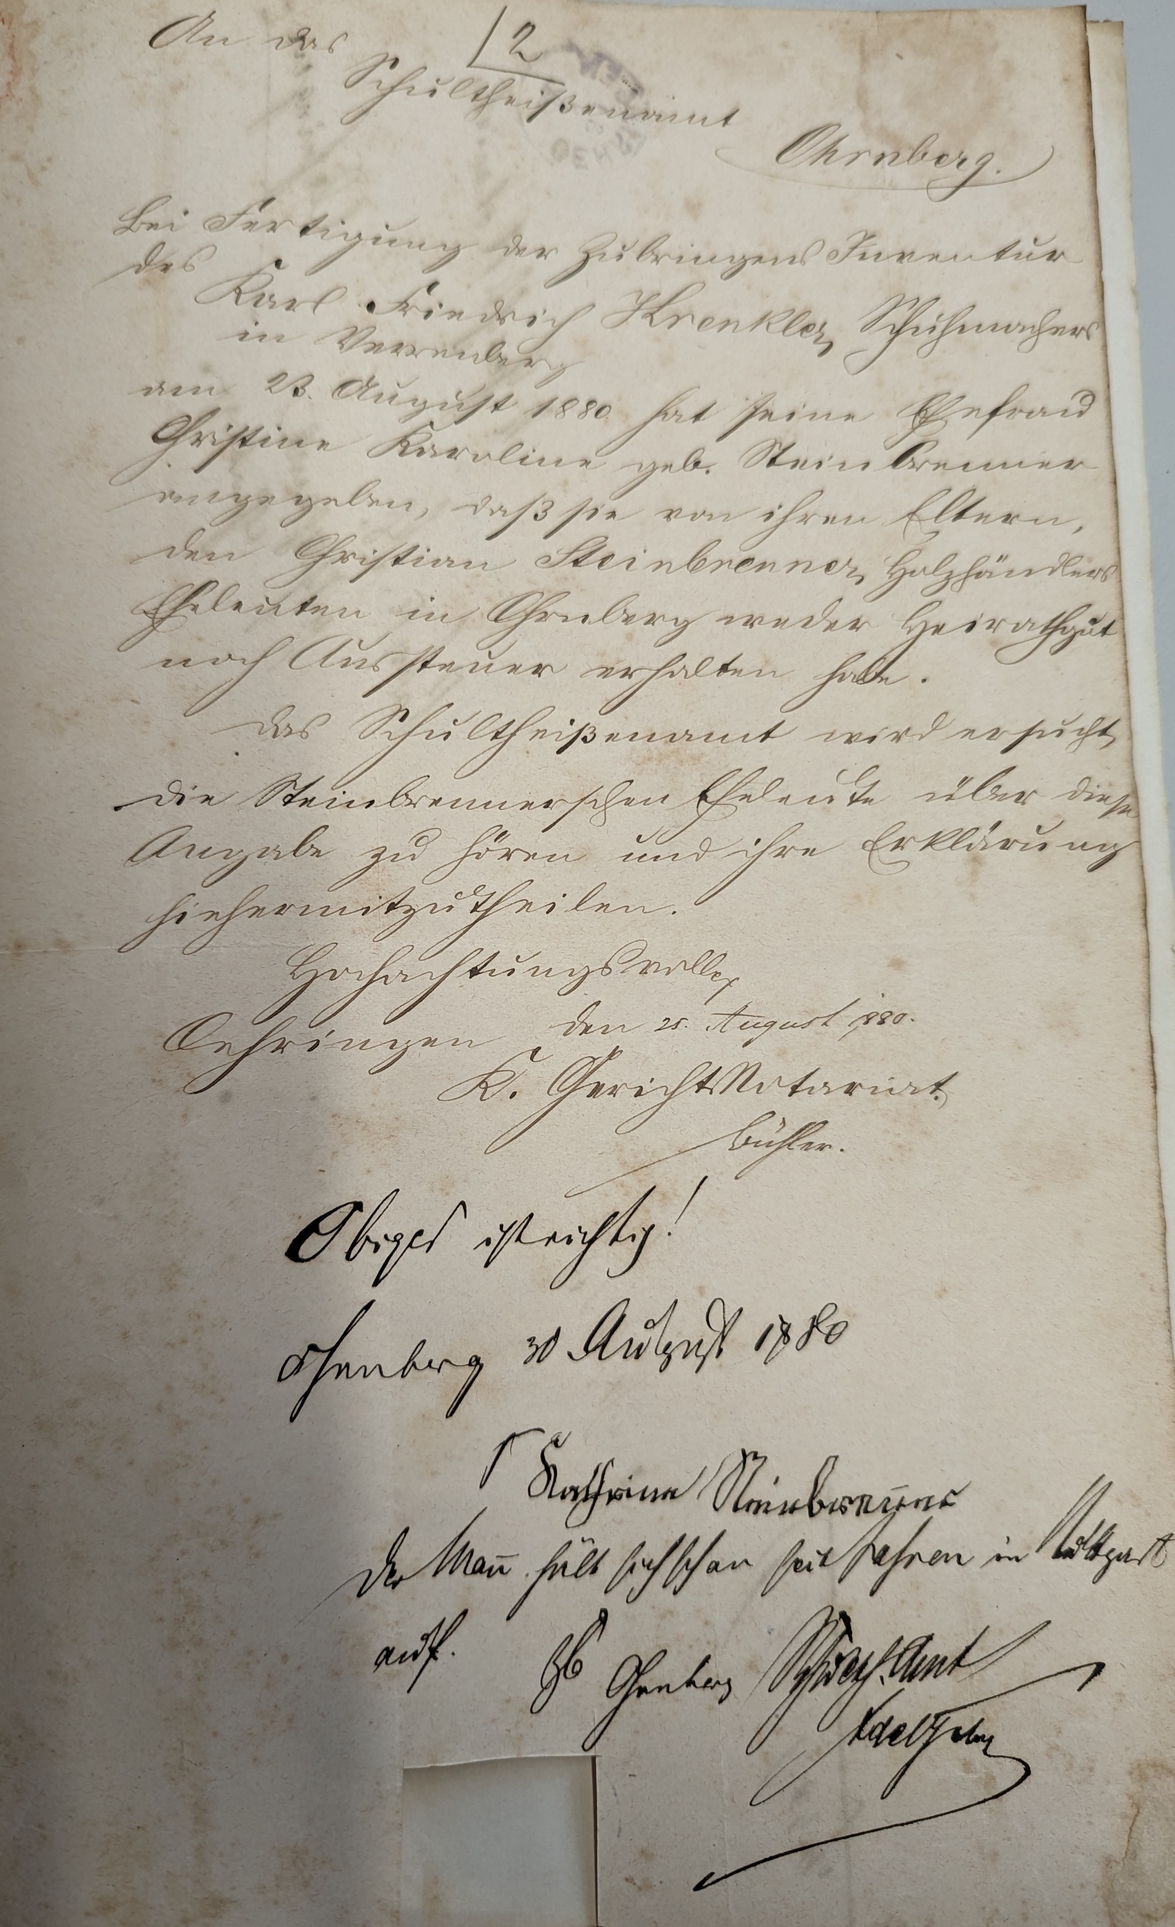 An das
2
Schultheißenamt
Ohrnberg.
Bei Fertigung der Zubringens Inventur
des
Karl Friedrich Krenkler, Schuhmachers
in Verrenberg
am 23. August 1880 hat seine Ehefrau
Christine Karoline geb. Steinbrenner
angegeben, daß sie von ihren Eltern,
den Christian Steinbrenner, Holzhändlers
Eheleuten in Ohrnberg weder Heirathgut
noch Aussteuer erhalten habe.
Das Schultheißenamt wird ersucht,
die Steinbrennerschen Eheleute über diese
Angabe zu hören und ihre Erklärung
hieher mitzutheilen.
Hochachtungsvollst
Oehringen den 25. August 1880.
K. GerichtsNotariat.
Bühler.
Obiges ist richtig!
Ohrnberg 30 August 1880
Kathrina Steinbrenner
Der Mañ hält sich schon seit Jahren in Stuttgart
auf.
Ohrnberg Schulth. Amt